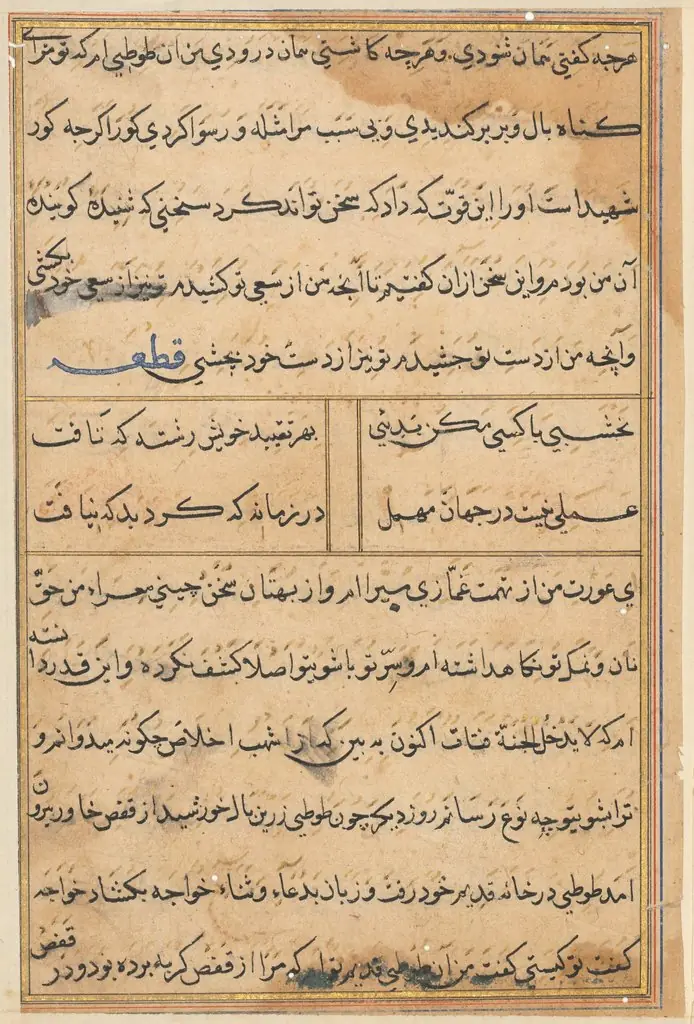 هرجه کفتی همان شنودی وهرجه کاشتی همان درودی من ان طوطی ام که تو مرا بی
کناه بال وپر برکندیدی وبی سبب مرا مثله ورسوا کردی کور اکر جه کور
شهید است اورا این قوّت که داد که سخن تواند کرد سخنی که شنیده کوینده
آن من بودم واین سخن ازان کفتم تا آنجه من از سعی تو کشیدم تو نیز از سعی خود بکشی
وآنچه من از دست تو جشیدم تو نیز از دست خود بچشی قطعه
نخشبی با کسی مکن بدیی
بهر تقیید خویش رشته که تافت
عملی نیت در جهان مهمل
در زمانه که کرد بد که نیافت
ای عورت من از تهمت غمّازی مبرا ام واز بهتان سخن چینی معراء من حقّ
نان ونمک تو نکاهداشته ام وسرّ تو با شوی تو اصلا کشف نکرده واین قدر دانسته
ام که لا یدخل الجنة قتات اکنون به بین که اشهب اخلاص جکونه میدوانم و
ترا بشوی توجه نوع رسانم روز دیکر چون طوطی زرین بال خورشید از قفص خاور بیرون
امد طوطی در خانه قدیم خود رفت وزبان بدعآء وثناء خواجه بکشاد خواجه
کفت تو کیستی کفت من آن طوطی قدیم توام که مرا از قفص کربه برده بود ودر قفص